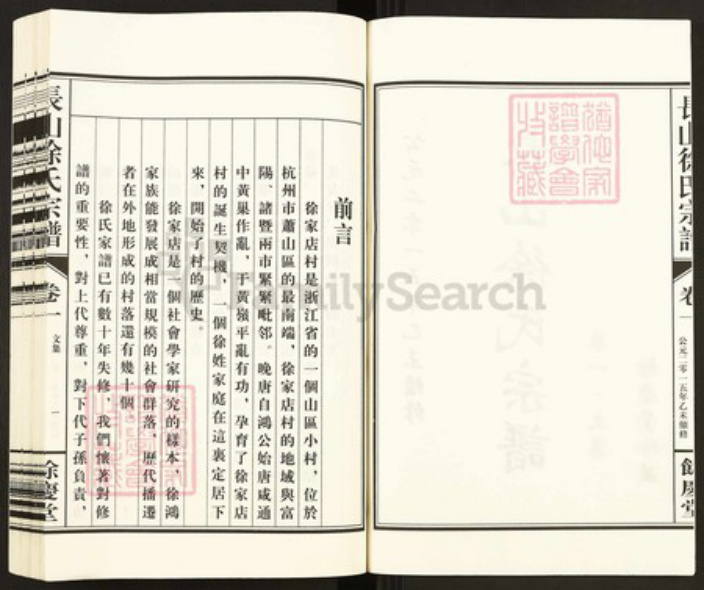 長山徐氏宗譜
卷一
公元二零一五年乙未續修
餘慶堂
前言
徐家店村是浙江省的一個山區小村，位於
杭州市蕭山區的最南端，徐家店村的地域與富
陽、諸暨兩市緊緊毗邻。晚唐自鴻公始唐咸通
中黃巢作亂，于黃嶺平亂有功，孕育了徐家店
村的誕生契機，一個徐姓家庭在這裏定居下
來，開始了村的歷史。
徐家店是一個社會學家研究的樣本，徐鴻
家族能發展成相當規模的社會群落，歷代播遷
者在外地形成的村落還有幾十個。
徐氏家譜已有數十年失修，我們懷著對修
譜的重要性，對上代尊重，對下代子孫負責，
長山徐氏宗譜
卷一
文集
一
餘慶堂
FamilySearch